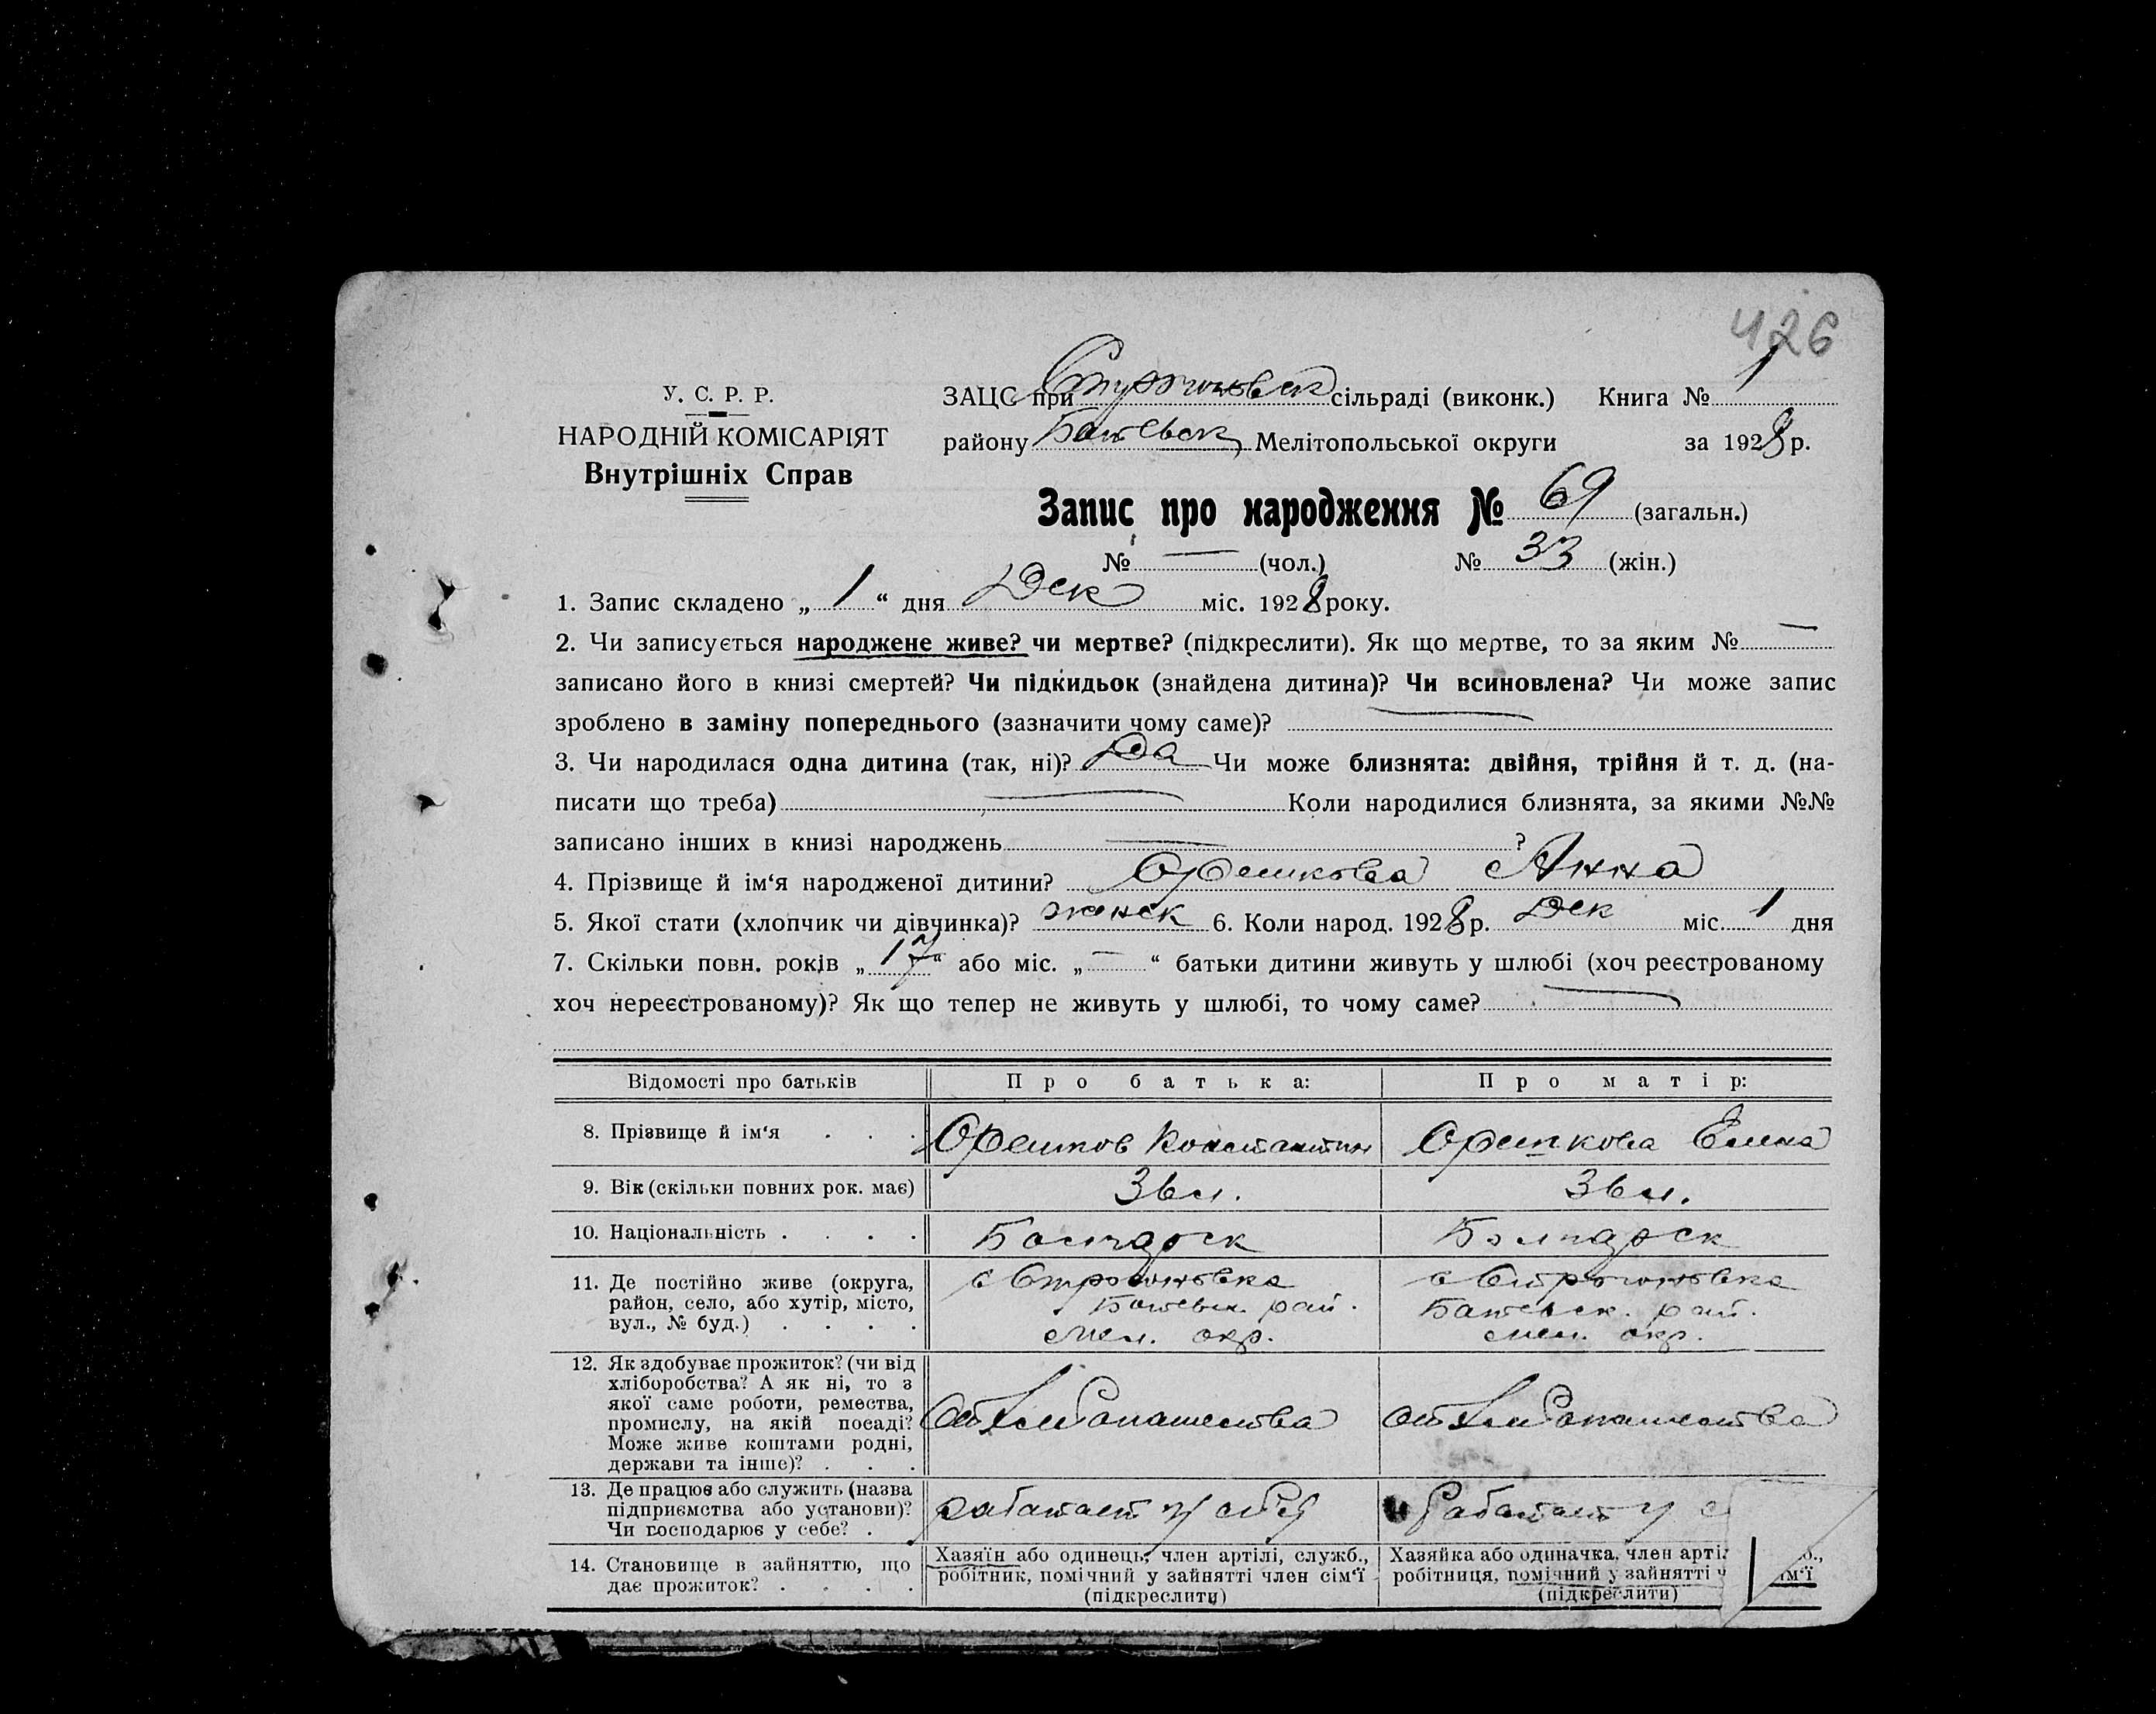 426
У. С. Р. Р.
НАРОДНІЙ КОМІСАРІЯТ
Внутрішніх Справ
ЗАЦС при Строгоновск сільраді (виконк.) Книга № 1
району Ботевск Мелітопольської округи за 1928 р.
Запис про народження № 69 (загальн.)
№ — (чол.) № 33 (жін.)
1. Запис складено „ 1 “ дня Дек міс. 1928 року.
2. Чи записується народжене живе? чи мертве? (підкреслити). Як що мертве, то за яким № —
записано його в книзі смертей? Чи підкидьок (знайдена дитина)? Чи всиновлена? Чи може запис
зроблено в заміну попереднього (зазначити чому саме)? —
3. Чи народилася одна дитина (так, ні)? Да Чи може близнята: двійня, трійня й т. д. (на-
писати що треба) — Коли народилися близнята, за якими №№
записано інших в книзі народжень — ?
4. Прізвище й ім‘я народженої дитини? Орешкова Анна
5. Якої стати (хлопчик чи дівчинка)? женск 6. Коли народ. 1928 р. Дек міс. 1 дня
7. Скільки повн. років „ 17 “ або міс. „ — “ батьки дитини живуть у шлюбі (хоч реєстрованому
хоч нереєстрованому)? Як що тепер не живуть у шлюбі, то чому саме? —
Відомості про батьків Про батька: Про матір:
8. Прізвище й ім‘я . . . Орешков Константин Орешкова Елена
9. Вік (скільки повних рок. має) 36 л. 36 л.
10. Національність . . . . Болгарск Болгарск
11. Де постійно живе (округа,
район, село, або хутір, місто,
вул., № буд.) . . . .
с Строгоновка
Ботевск. рай.
Мел. окр.
с Строгоновка
Ботевск. рай.
Мел. окр.
12. Як здобуває прожиток? (чи від
хліборобства? А як ні, то з
якої саме роботи, ремества,
промислу, на якій посаді?
Може живе коштами родні,
держави та інше)? . . .
от хлебопашества
от хлебопашества
13. Де працює або служить (назва
підприємства або установи)?
Чи господарює у себе? .
работает у себя
работает у с
14. Становище в зайняттю, що
дає прожиток? . . . .
Хазяїн або одинець, член артілі, служб.,
робітник, помічний у зайнятті член сім‘ї
(підкреслити)
Хазяйка або одиначка, член арті б.,
робітниця, помічний у зайнятті ч ім‘ї
(підкреслити)